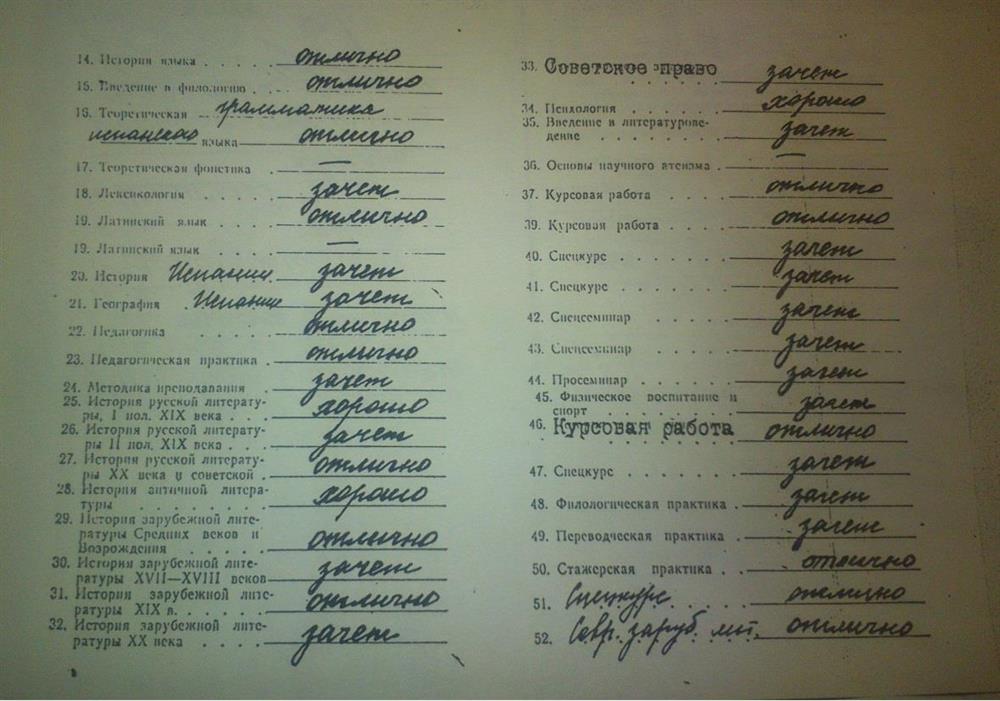 14. История языка . . . отлично
15. Введение в филологию . отлично
16. Теоретическая грамматика
испанского языка отлично
17. Теоретическая фонетика . —
18. Лексикология . . . . зачет
19. Латинский язык . . . отлично
19. Латинский язык . . . —
20. История Испании . зачет
21. География . Испании зачет
22. Педагогика . . . . отлично
23. Педагогическая практика . отлично
24. Методика преподавания . зачет
25. История русской литерату-
ры, I пол. XIX века . . . хорошо
26. История русской литерату-
ры II пол. XIX века . . . зачет
27. История русской литерату-
ры XX века и советской . отлично
28. История античной литера-
туры . . . . . . хорошо
29. История зарубежной лите-
ратуры Средних веков и
Возрождения . . . . . отлично
30. История зарубежной лите-
ратуры XVII—XVIII веков зачет
31. История зарубежной лите-
ратуры XIX в. . . . . отлично
32. История зарубежной лите-
ратуры XX века . . . . зачет
33. Советское право зачет
34. Психология . . . . . хорошо
35. Введение в литературове-
дение . . . . . . зачет
36. Основы научного атеизма . —
37. Курсовая работа . . . отлично
39. Курсовая работа . . . отлично
40. Спецкурс . . . . . зачет
41. Спецкурс . . . . . зачет
42. Спецсеминар . . . . зачет
43. Спецсеминар . . . . зачет
44. Просеминар . . . . . зачет
45. Физическое воспитание и
спорт . . . . . . зачет
46. Курсовая работа отлично
47. Спецкурс . . . . . зачет
48. Филологическая практика . зачет
49. Переводческая практика . зачет
50. Стажерская практика . . отлично
51. Спецкурс отлично
52. Совр. заруб. лит. отлично